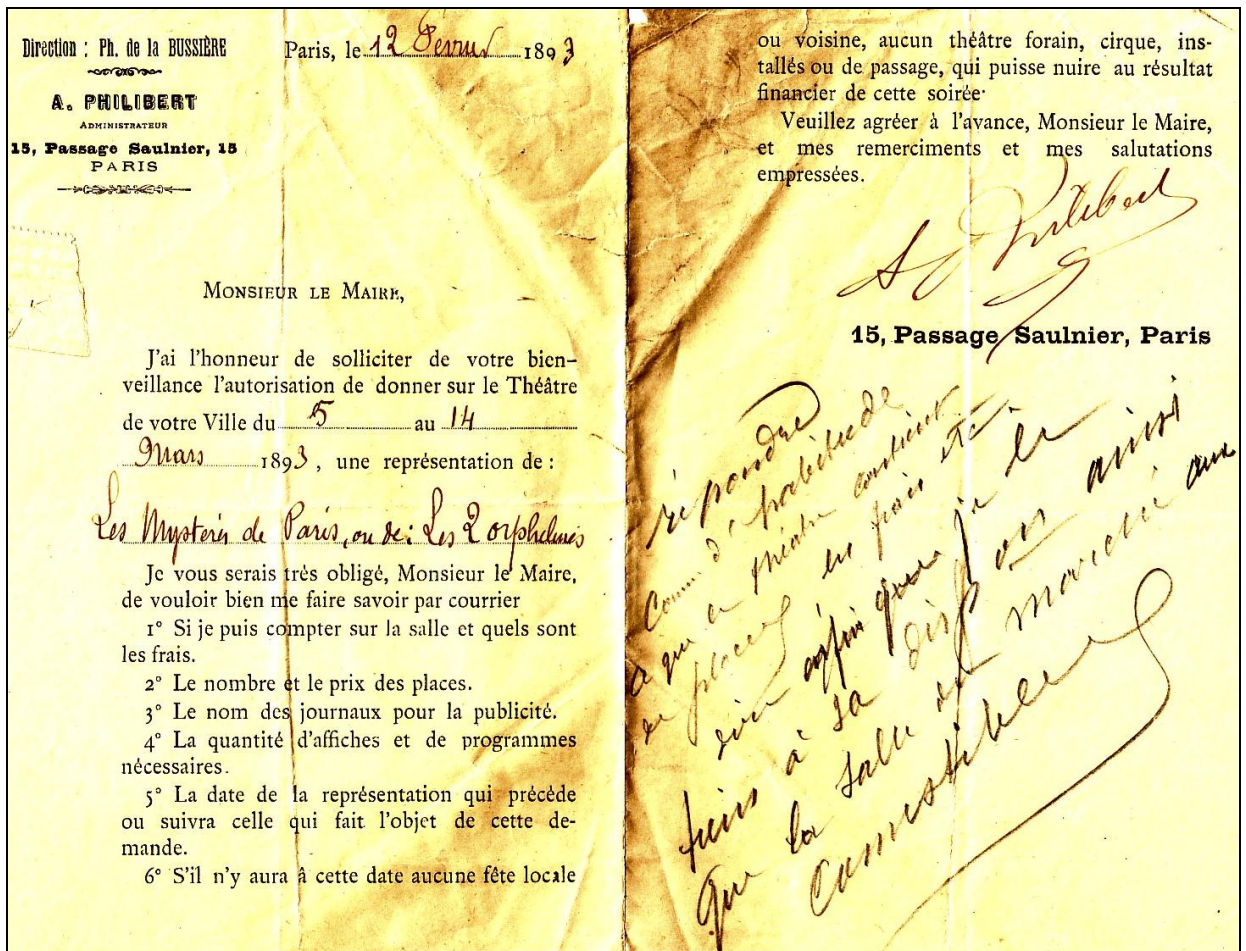 Direction : Ph. de la BUSSIÈRE
A. PHILIBERT
ADMINISTRATEUR
15, Passage Saulnier, 15
PARIS
Paris, le 12 Fevrier 1893
MONSIEUR LE MAIRE,
J'ai l'honneur de solliciter de votre bien-
veillance l'autorisation de donner sur le Théâtre
de votre Ville du 5 au 14
Mars 1893, une représentation de :
Les Mystères de Paris, ou de : Les 2 orphelines
Je vous serais très obligé, Monsieur le Maire,
de vouloir bien me faire savoir par courrier
1° Si je puis compter sur la salle et quels sont
les frais.
2° Le nombre et le prix des places.
3° Le nom des journaux pour la publicité.
4° La quantité d'affiches et de programmes
nécessaires.
5° La date de la représentation qui précède
ou suivra celle qui fait l'objet de cette de-
mande.
6° S'il n'y aura à cette date aucune fête locale
ou voisine, aucun théâtre forain, cirque, ins-
tallés ou de passage, qui puisse nuire au résultat
financier de cette soirée.
Veuillez agréer à l'avance, Monsieur le Maire,
et mes remerciments et mes salutations
empressées.
A Philibert
15, Passage Saulnier, Paris
répondre
comme d'habitude
a que le théâtre contient
de places les frais etc
dire afin que je le
tiens à sa disp on ainsi
que la salle du marché aux
comestibles